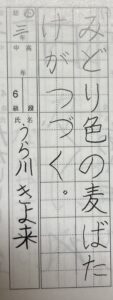 みどり色の麦ばた
けがつづく。
幼
小
三年
中
高
年
6
級
段
氏名
うら川きよ来